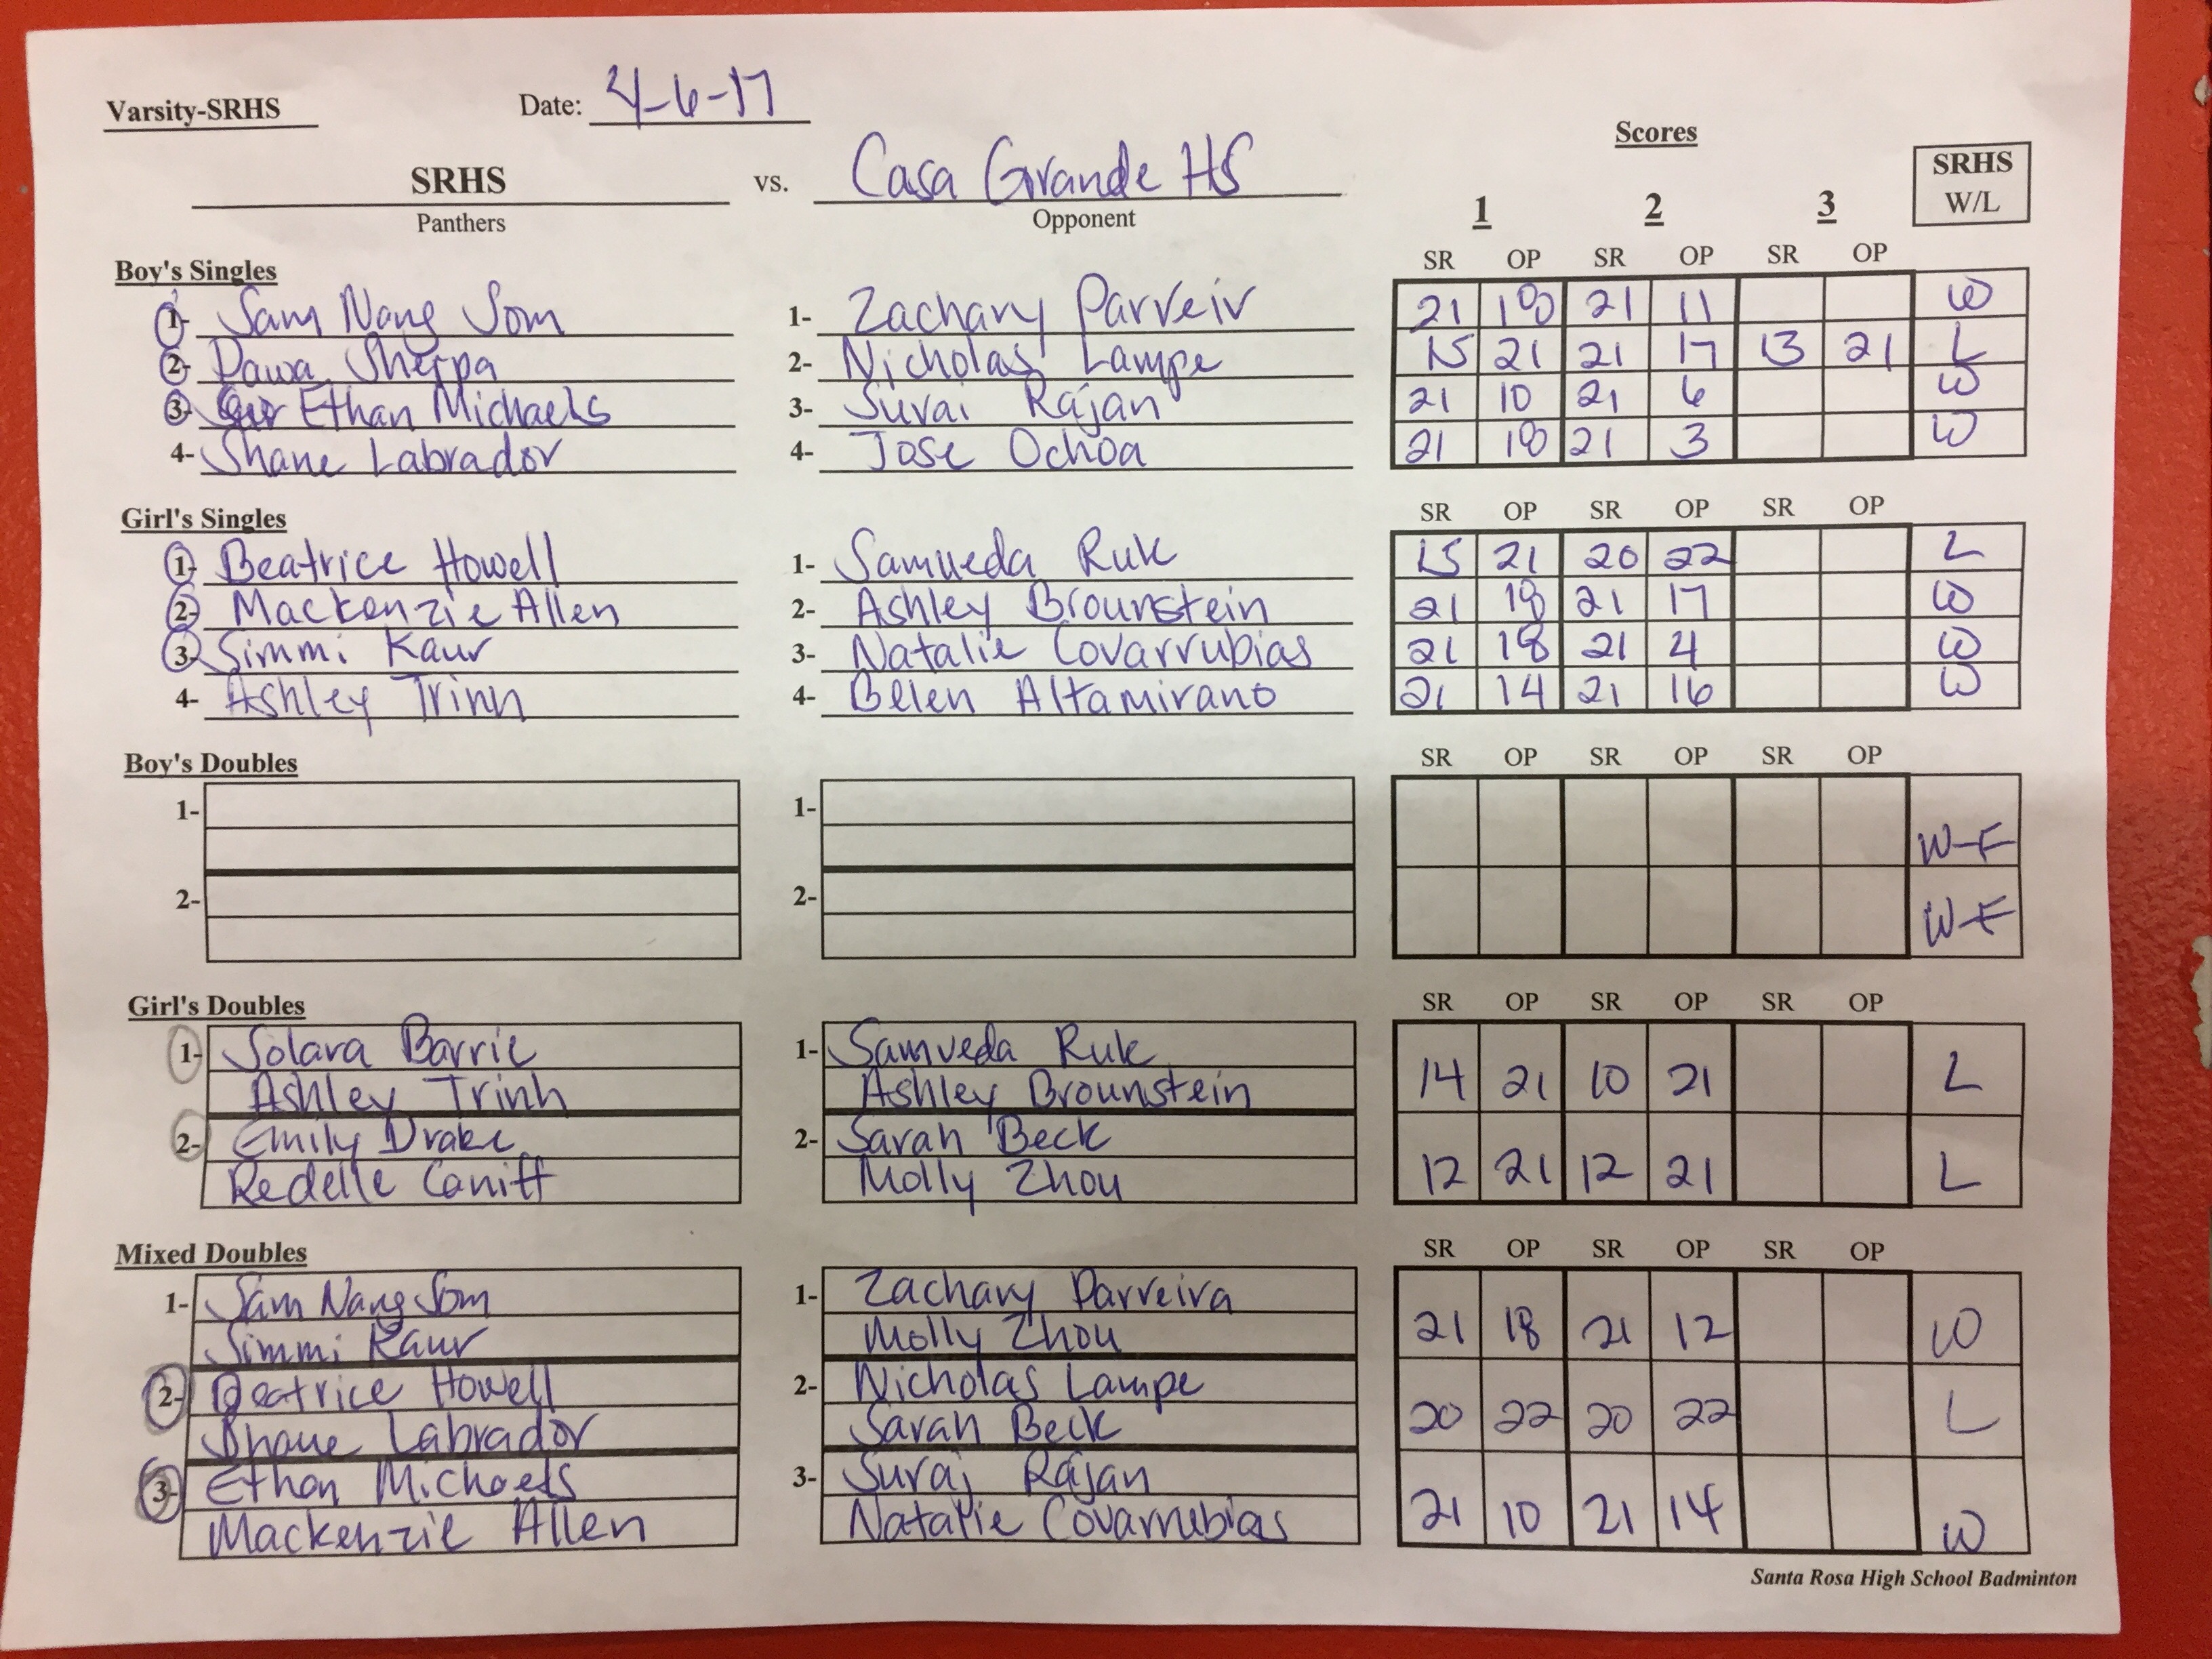 Varsity-SRHS Date: 4-6-17
Scores
SRHS vs. Casa Grande HS SRHS
Panthers Opponent 1 2 3 W/L
Boy's Singles SR OP SR OP SR OP
1- Sam Nang Som 1- Zachary Parreir 21 18 21 11 W
2- Dawa Sherpa 2- Nicholas Lampe 15 21 21 17 13 21 L
3- Ethan Michaels 3- Suraj Rajan 21 10 21 6 W
4- Shane Labrador 4- Jose Ochoa 21 18 21 3 W
Girl's Singles SR OP SR OP SR OP
1- Beatrice Howell 1- Samveda Ruk 15 21 20 22 L
2- Mackenzie Allen 2- Ashley Brounstein 21 18 21 17 W
3- Simmi Kaur 3- Natalie Covarrubias 21 18 21 4 W
4- Ashley Trinh 4- Belen Altamirano 21 14 21 16 W
Boy's Doubles SR OP SR OP SR OP
1- 1- W-F
2- 2- W-F
Girl's Doubles SR OP SR OP SR OP
1- Solara Barrie 1- Samveda Ruk 14 21 10 21 L
Ashley Trinh Ashley Brounstein
2- Emily Drake 2- Sarah Beck 12 21 12 21 L
Redelle Caniff Molly Zhou
Mixed Doubles SR OP SR OP SR OP
1- Sam Nang Som 1- Zachary Parreira 21 18 21 12 W
Simmi Kaur Molly Zhou
2- Beatrice Howell 2- Nicholas Lampe 20 22 20 22 L
Shane Labrador Sarah Beck
3- Ethan Michaels 3- Suraj Rajan 21 10 21 14 W
Mackenzie Allen Natalie Covarrubias
Santa Rosa High School Badminton